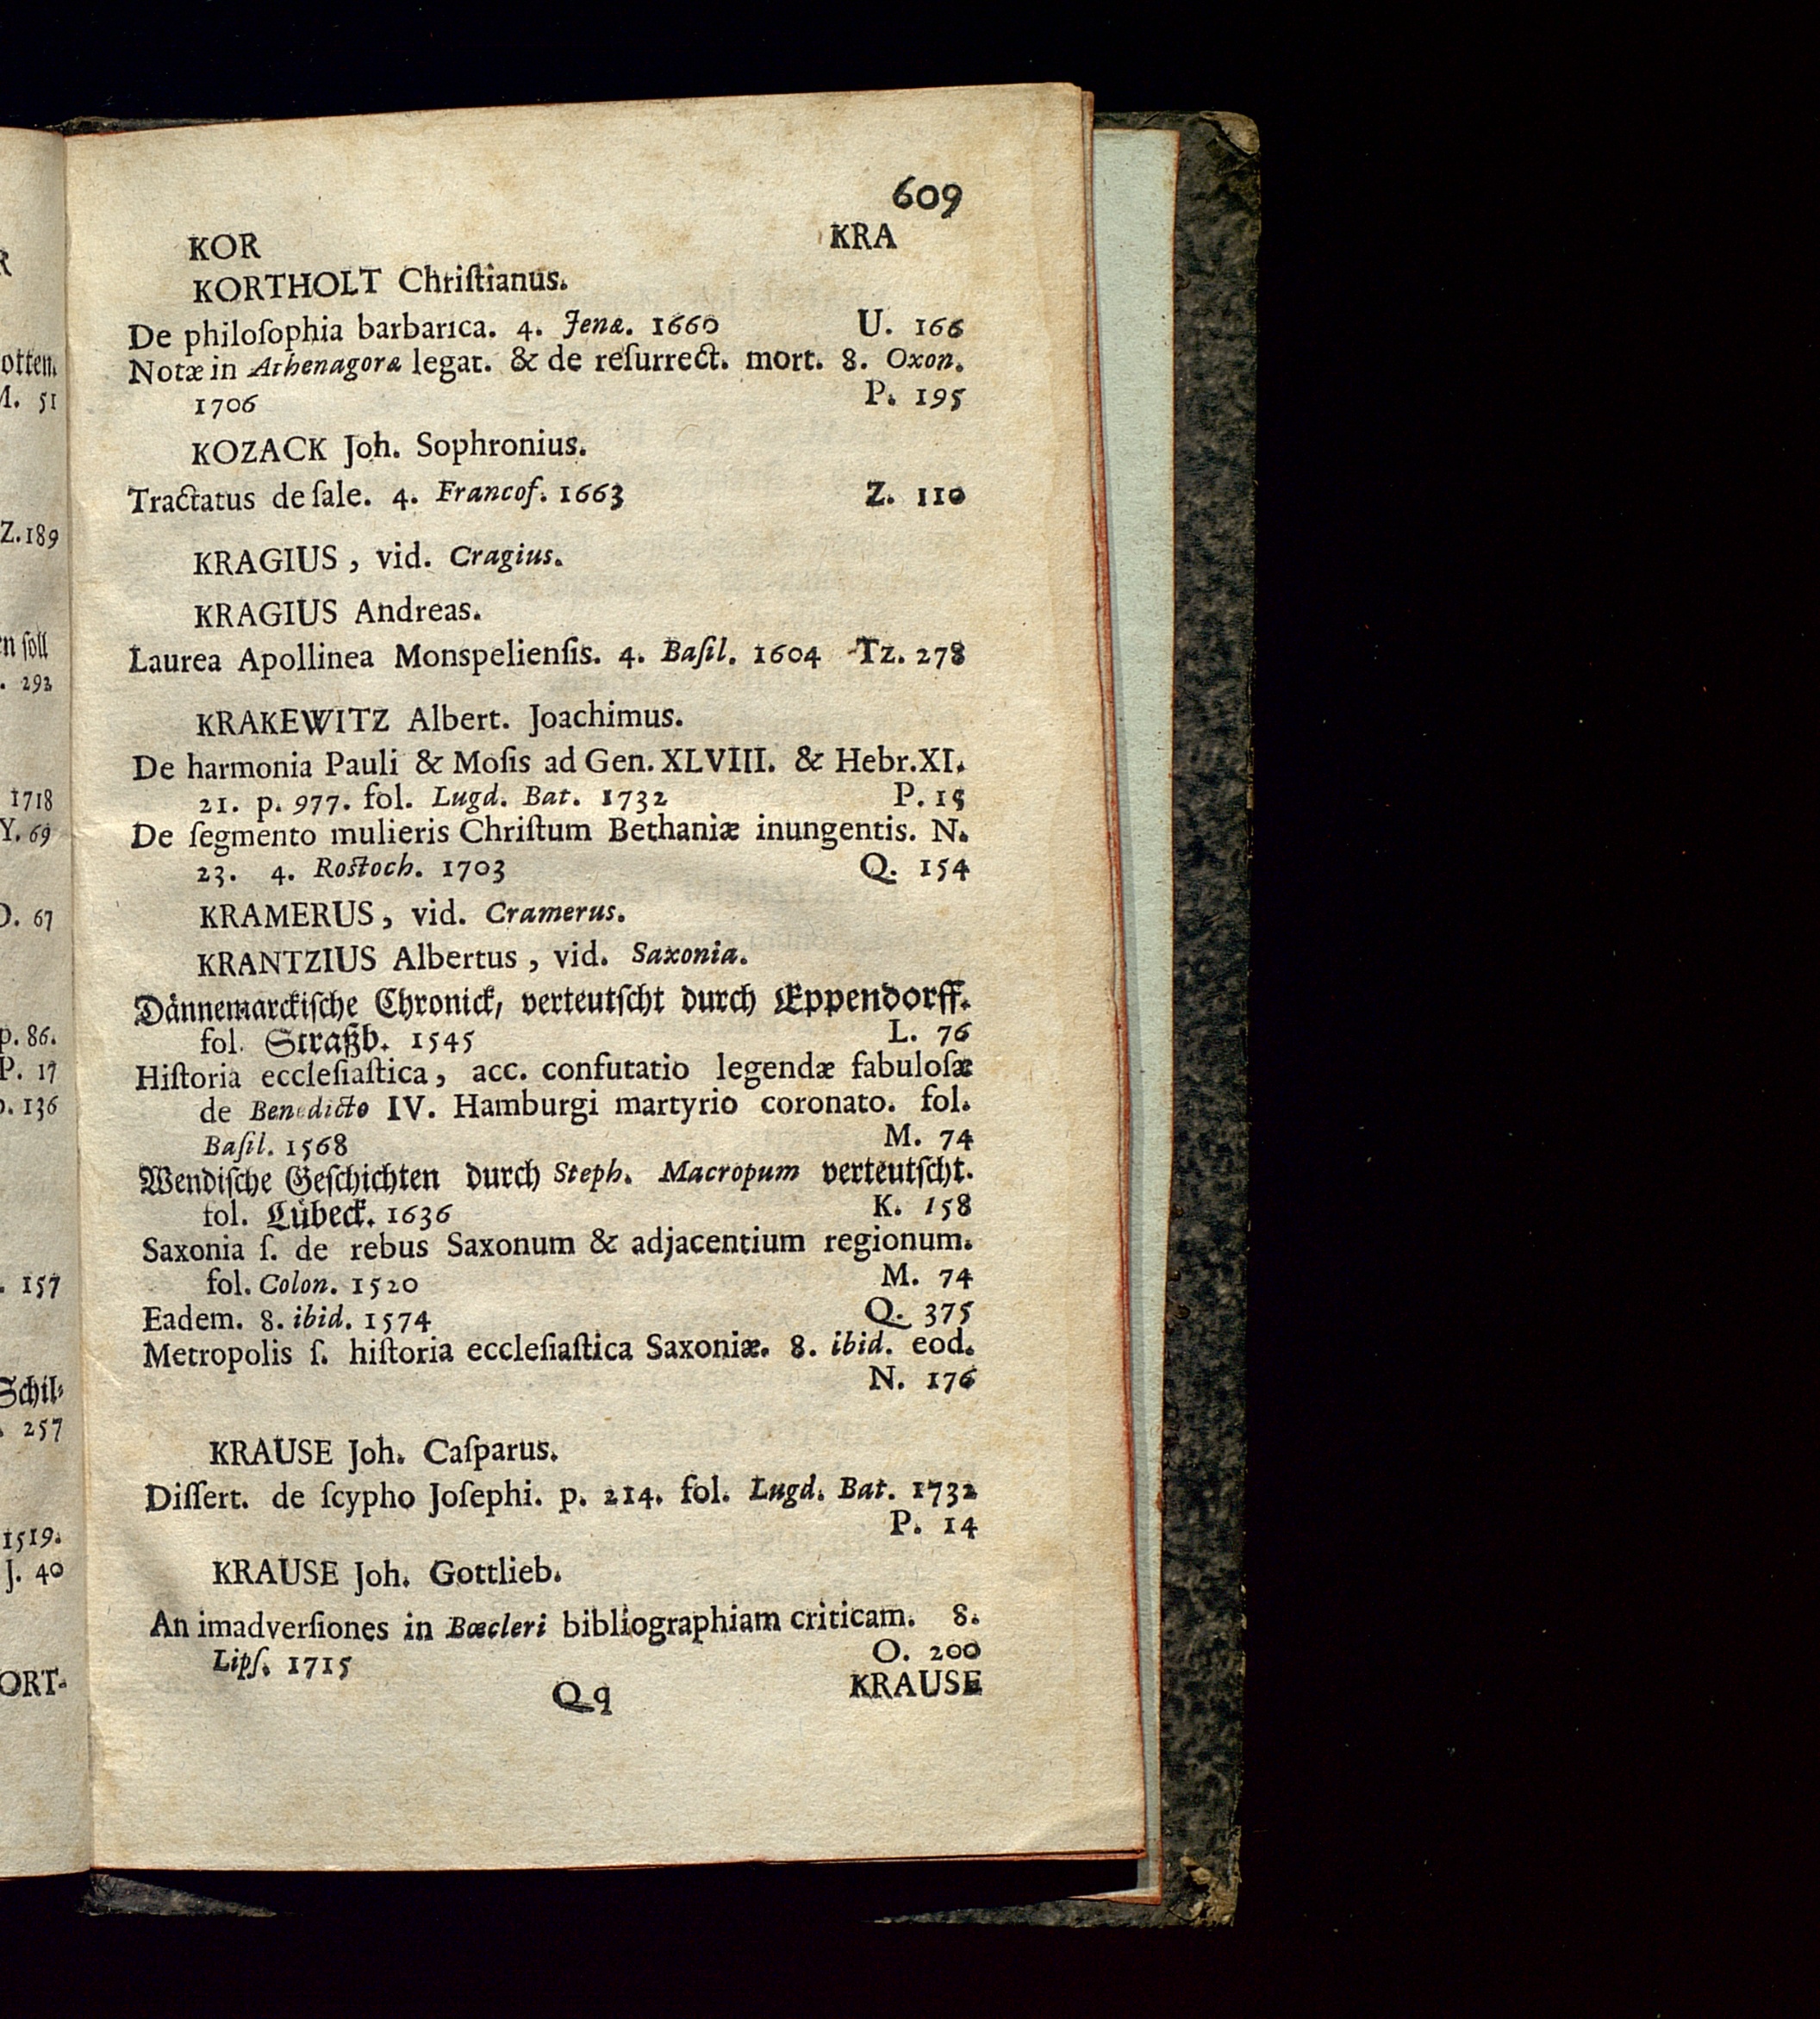 609
KOR KRA
KORTHOLT Chriſtianus.
De philoſophia barbarica. 4. Jenæ. 1660 U. 166
Notæ in Athenagoræ legat. & de reſurrect. mort. 8. Oxon.
1706 P. 195
KOZACK Joh. Sophronius.
Tractatus de ſale. 4. Francof. 1663 Z. 110
KRAGIUS, vid. Cragius.
KRAGIUS Andreas.
Laurea Apollinea Monspelienſis. 4. Baſil. 1604 Tz. 278
KRAKEWITZ Albert. Joachimus.
De harmonia Pauli & Moſis ad Gen. XLVIII. & Hebr. XI.
21. p. 977. fol. Lugd. Bat. 1732 P. 15
De ſegmento mulieris Chriſtum Bethaniæ inungentis. N.
23. 4. Rostoch. 1703 Q. 154
KRAMERUS, vid. Cramerus.
KRANTZIUS Albertus, vid. Saxonia.
Dännemarckiſche Chronick, verteutſcht durch Eppendorff.
fol. Straßb. 1545 L. 76
Hiſtoria eccleſiaſtica, acc. confutatio legendæ fabuloſæ
de Benedicto IV. Hamburgi martyrio coronato. fol.
Baſil. 1568 M. 74
Wendiſche Geſchichten durch Steph. Macropum verteutſcht.
fol. Lübeck. 1636 K. 158
Saxonia ſ. de rebus Saxonum & adjacentium regionum.
fol. Colon. 1520 M. 74
Eadem. 8. ibid. 1574 Q. 375
Metropolis ſ. hiſtoria eccleſiaſtica Saxoniæ. 8. ibid. eod.
N. 176
KRAUSE Joh. Caſparus.
Diſſert. de ſcypho Joſephi. p. 214. fol. Lugd. Bat. 1732
P. 14
KRAUSE Joh. Gottlieb.
An imadverſiones in Bœcleri bibliographiam criticam. 8.
Lipſ. 1715 O. 200
Qq KRAUSE